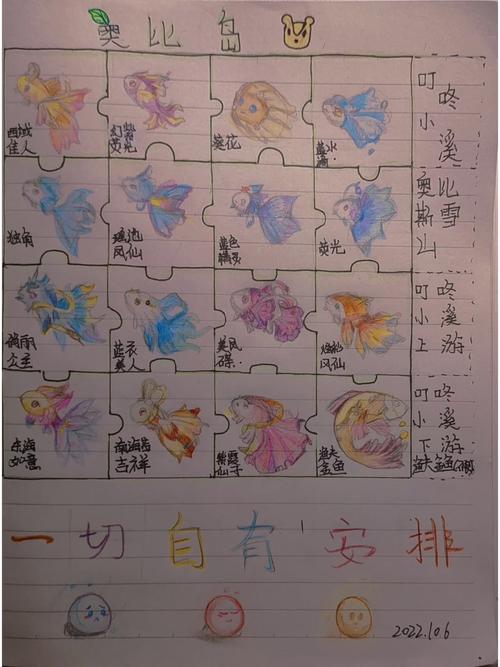 奥比岛
西域
佳人
幻紫
荧光
葵花
蓝水
滴
叮咚
小溪
独角
瑶池
凤仙
蓝色
精灵
荧光
奥比
斯雪
山
俏丽
公主
蓝衣
美人
美凤
碟
炫彩
凤仙
叮咚
小溪
上游
东海
如意
南海岛
吉祥
紫霞
仙子
渔夫
金鱼
叮咚
小溪
下游
一切自有安排
2022.10.6